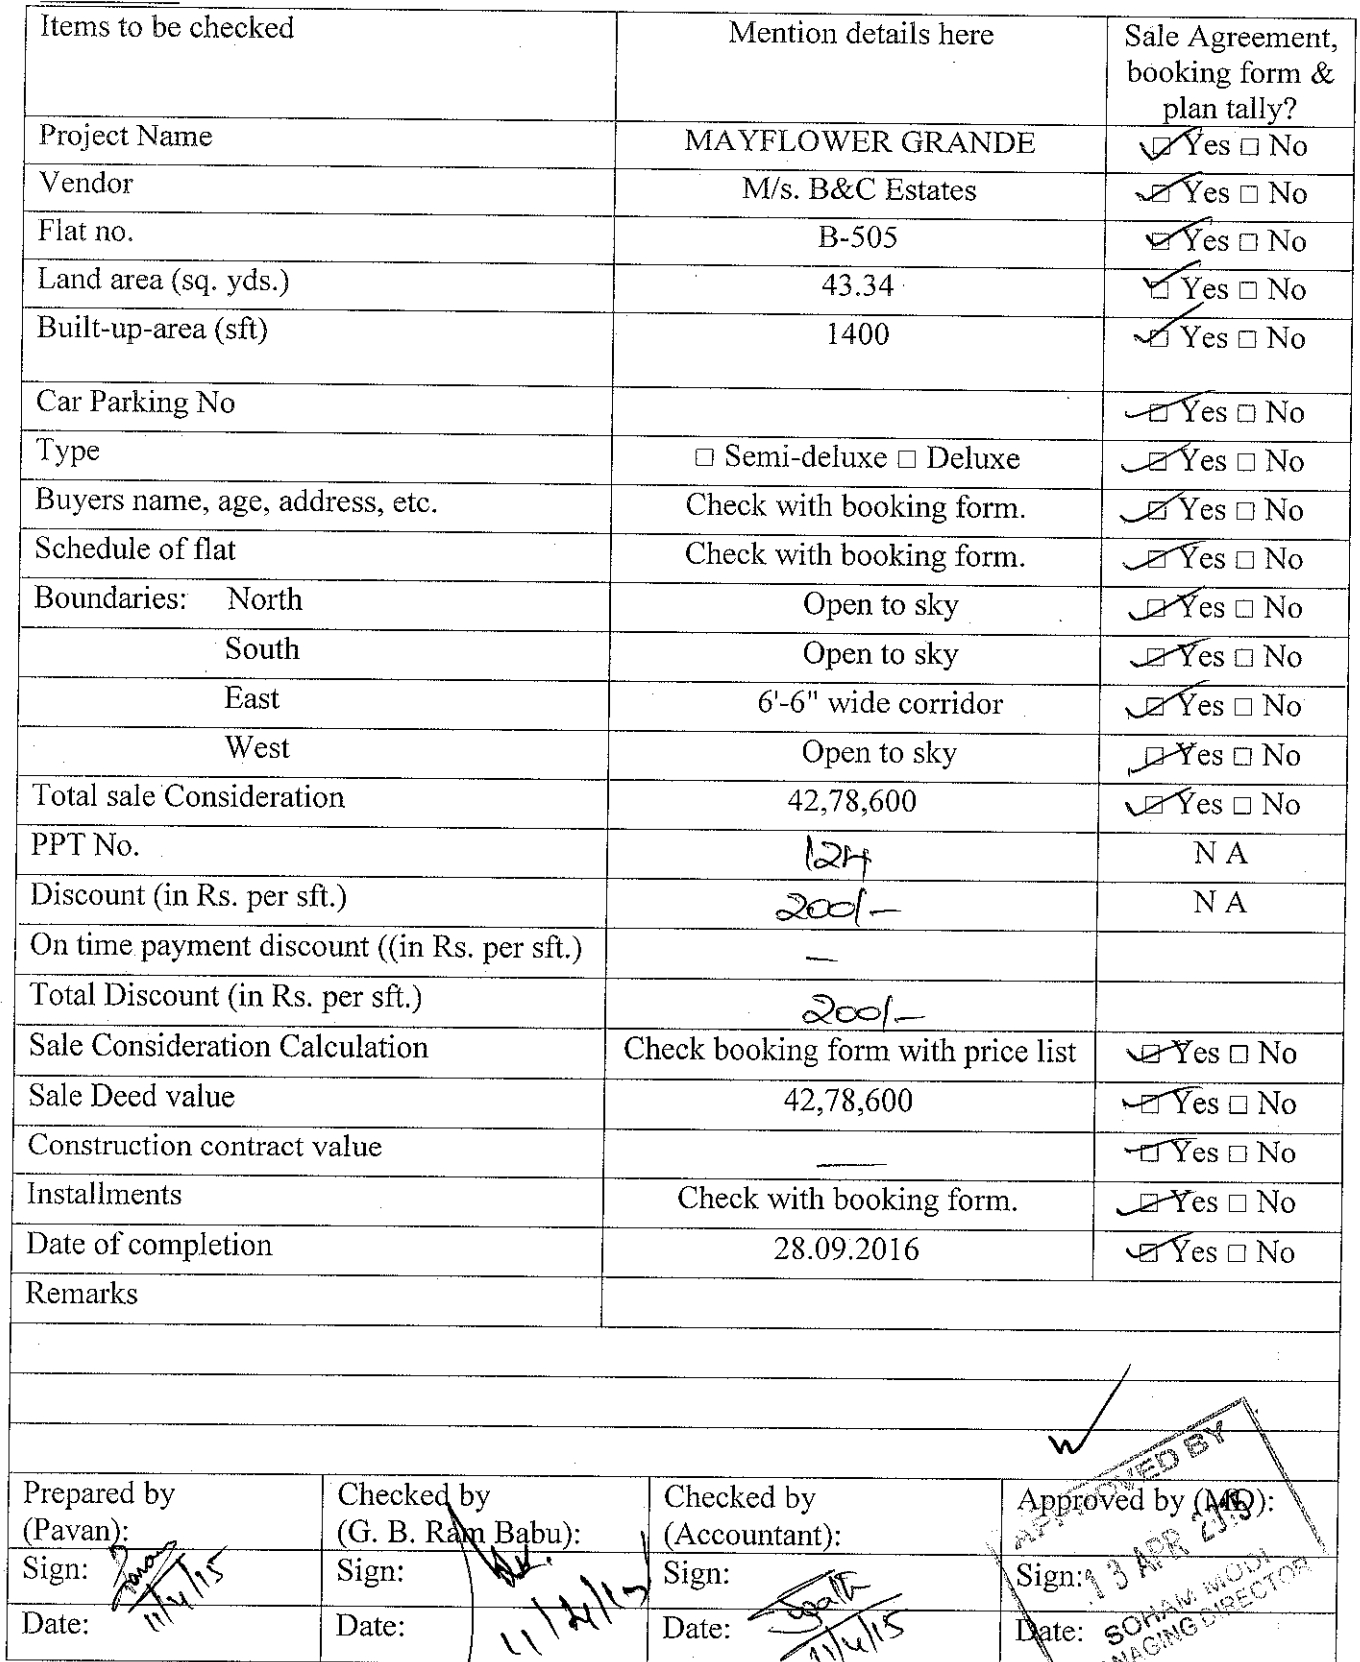 Items to be checked Mention details here Sale Agreement,
booking form &
plan tally?
Project Name MAYFLOWER GRANDE □ Yes □ No
Vendor M/s. B&C Estates □ Yes □ No
Flat no. B-505 □ Yes □ No
Land area (sq. yds.) 43.34 □ Yes □ No
Built-up-area (sft) 1400 □ Yes □ No
Car Parking No □ Yes □ No
Type □ Semi-deluxe □ Deluxe □ Yes □ No
Buyers name, age, address, etc. Check with booking form. □ Yes □ No
Schedule of flat Check with booking form. □ Yes □ No
Boundaries: North Open to sky □ Yes □ No
South Open to sky □ Yes □ No
East 6'-6" wide corridor □ Yes □ No
West Open to sky □ Yes □ No
Total sale Consideration 42,78,600 □ Yes □ No
PPT No. 124 N A
Discount (in Rs. per sft.) 200/- N A
On time payment discount ((in Rs. per sft.) —
Total Discount (in Rs. per sft.) 200/-
Sale Consideration Calculation Check booking form with price list □ Yes □ No
Sale Deed value 42,78,600 □ Yes □ No
Construction contract value — □ Yes □ No
Installments Check with booking form. □ Yes □ No
Date of completion 28.09.2016 □ Yes □ No
Remarks
APPROVED BY
Prepared by Checked by Checked by Approved by (MD):
(Pavan): (G. B. Ram Babu): (Accountant):
13 APR 2015
Sign: Pavan Sign: Sign: Sign:
SOHAM MODI
MANAGING DIRECTOR
Date: 11/4/15 Date: 11/4/15 Date: 11/4/15 Date: